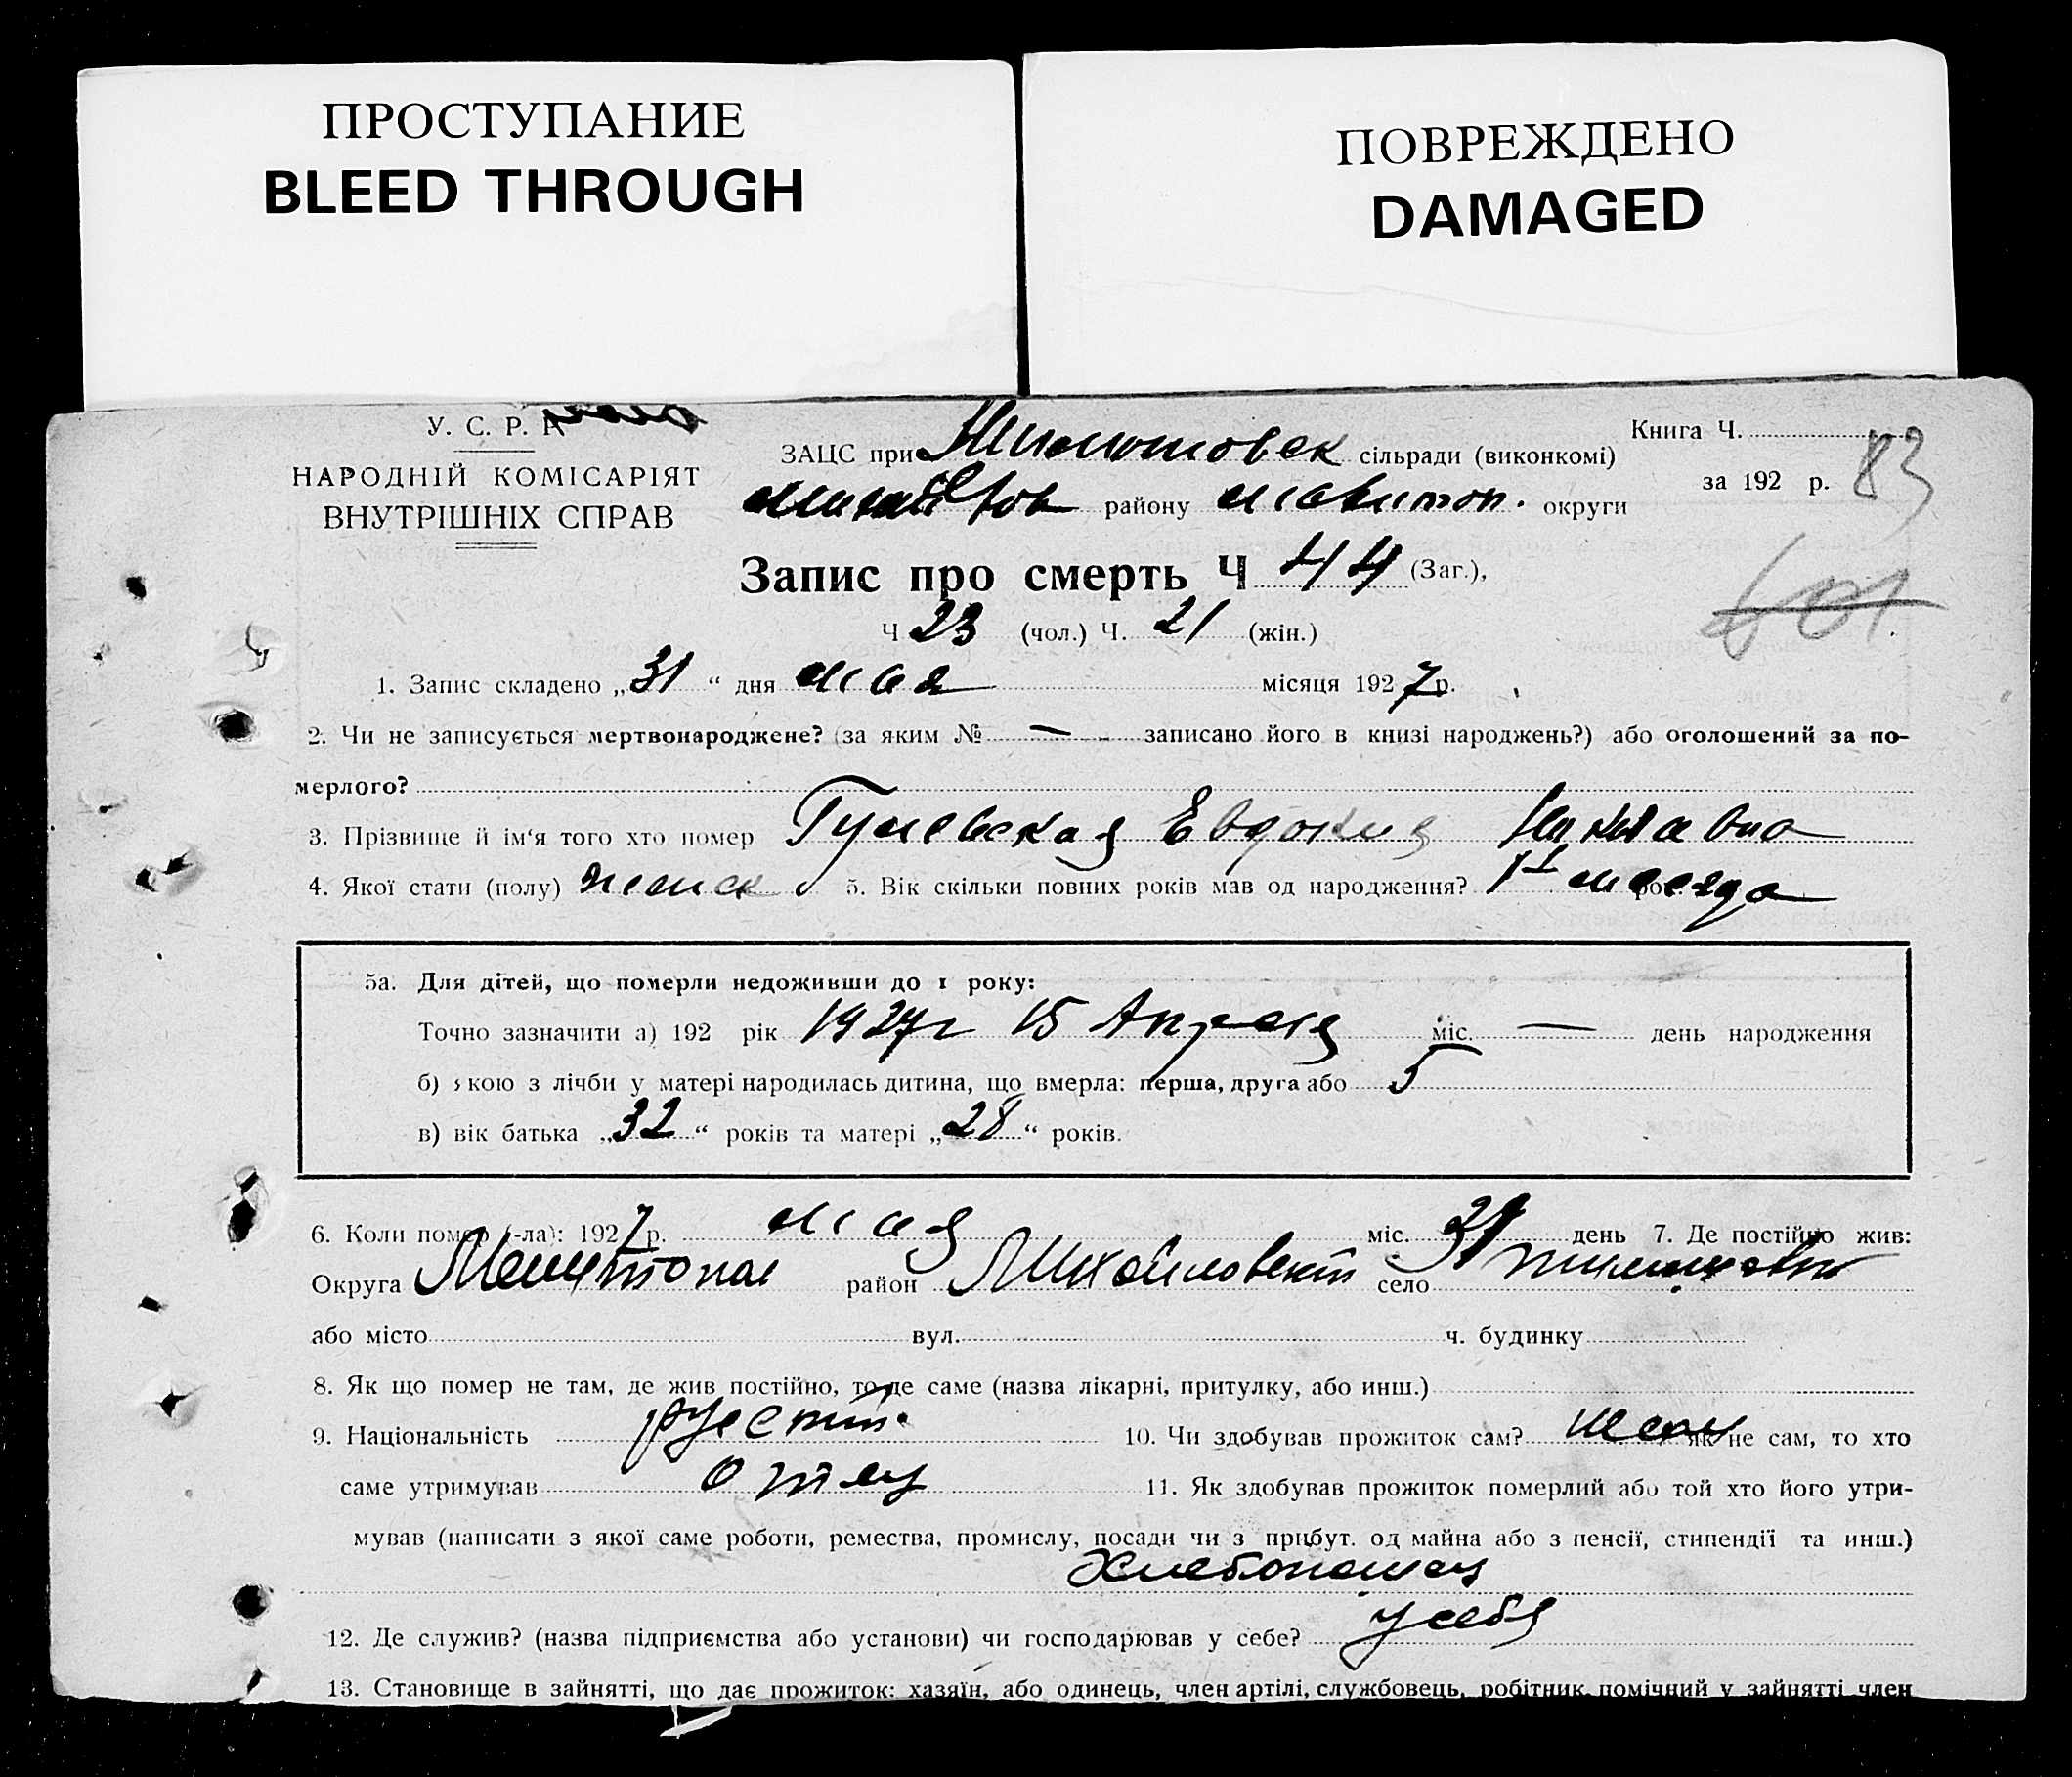 ПРОСТУПАНИЕ
BLEED THROUGH
ПОВРЕЖДЕНО
DAMAGED
У. С. Р. Р.
НАРОДНІЙ КОМІСАРІЯТ
ВНУТРІШНІХ СПРАВ
Книга Ч.
за 192 р. 83
ЗАЦС при сільради (виконкомі)
району округи
Запис про смерть Ч 44 (Заг.),
601
Ч 23 (чол.) Ч. 21 (жін.)
1. Запис складено „31“ дня мая місяця 1927 р.
2. Чи не записується мертвонароджене? (за яким № — записано його в книзі народжень?) або оголошений за по-
мерлого?
3. Прізвище й ім'я того хто помер Евдокия
4. Якої стати (полу) женск 5. Вік скільки повних років мав од народження? рок
5а. Для дітей, що померли недоживши до 1 року:
Точно зазначити а) 192 рік 1927г 15 Апреля міс. — день народження
б) якою з лічби у матері народилась дитина, що вмерла: перша, друга або 5
в) вік батька „32“ років та матері „28“ років.
6. Коли помер (-ла): 1927 р. мая міс. 31 день 7. Де постійно жив:
Округа район село
або місто вул. ч. будинку
8. Як що помер не там, де жив постійно, то де саме (назва лікарні, притулку, або инш.)
9. Національність 10. Чи здобував прожиток сам? як не сам, то хто
саме утримував отец 11. Як здобував прожиток померлий або той хто його утри-
мував (написати з якої саме роботи, ремества, промислу, посади чи з прибут. од майна або з пенсії, стипендії та инш.)
Хлебопашец
12. Де служив? (назва підприємства або установи) чи господарював у себе? у себя
13. Становище в зайнятті, що дає прожиток: хазяїн, або одинець, член артілі, службовець, робітник, помічний у зайнятті член